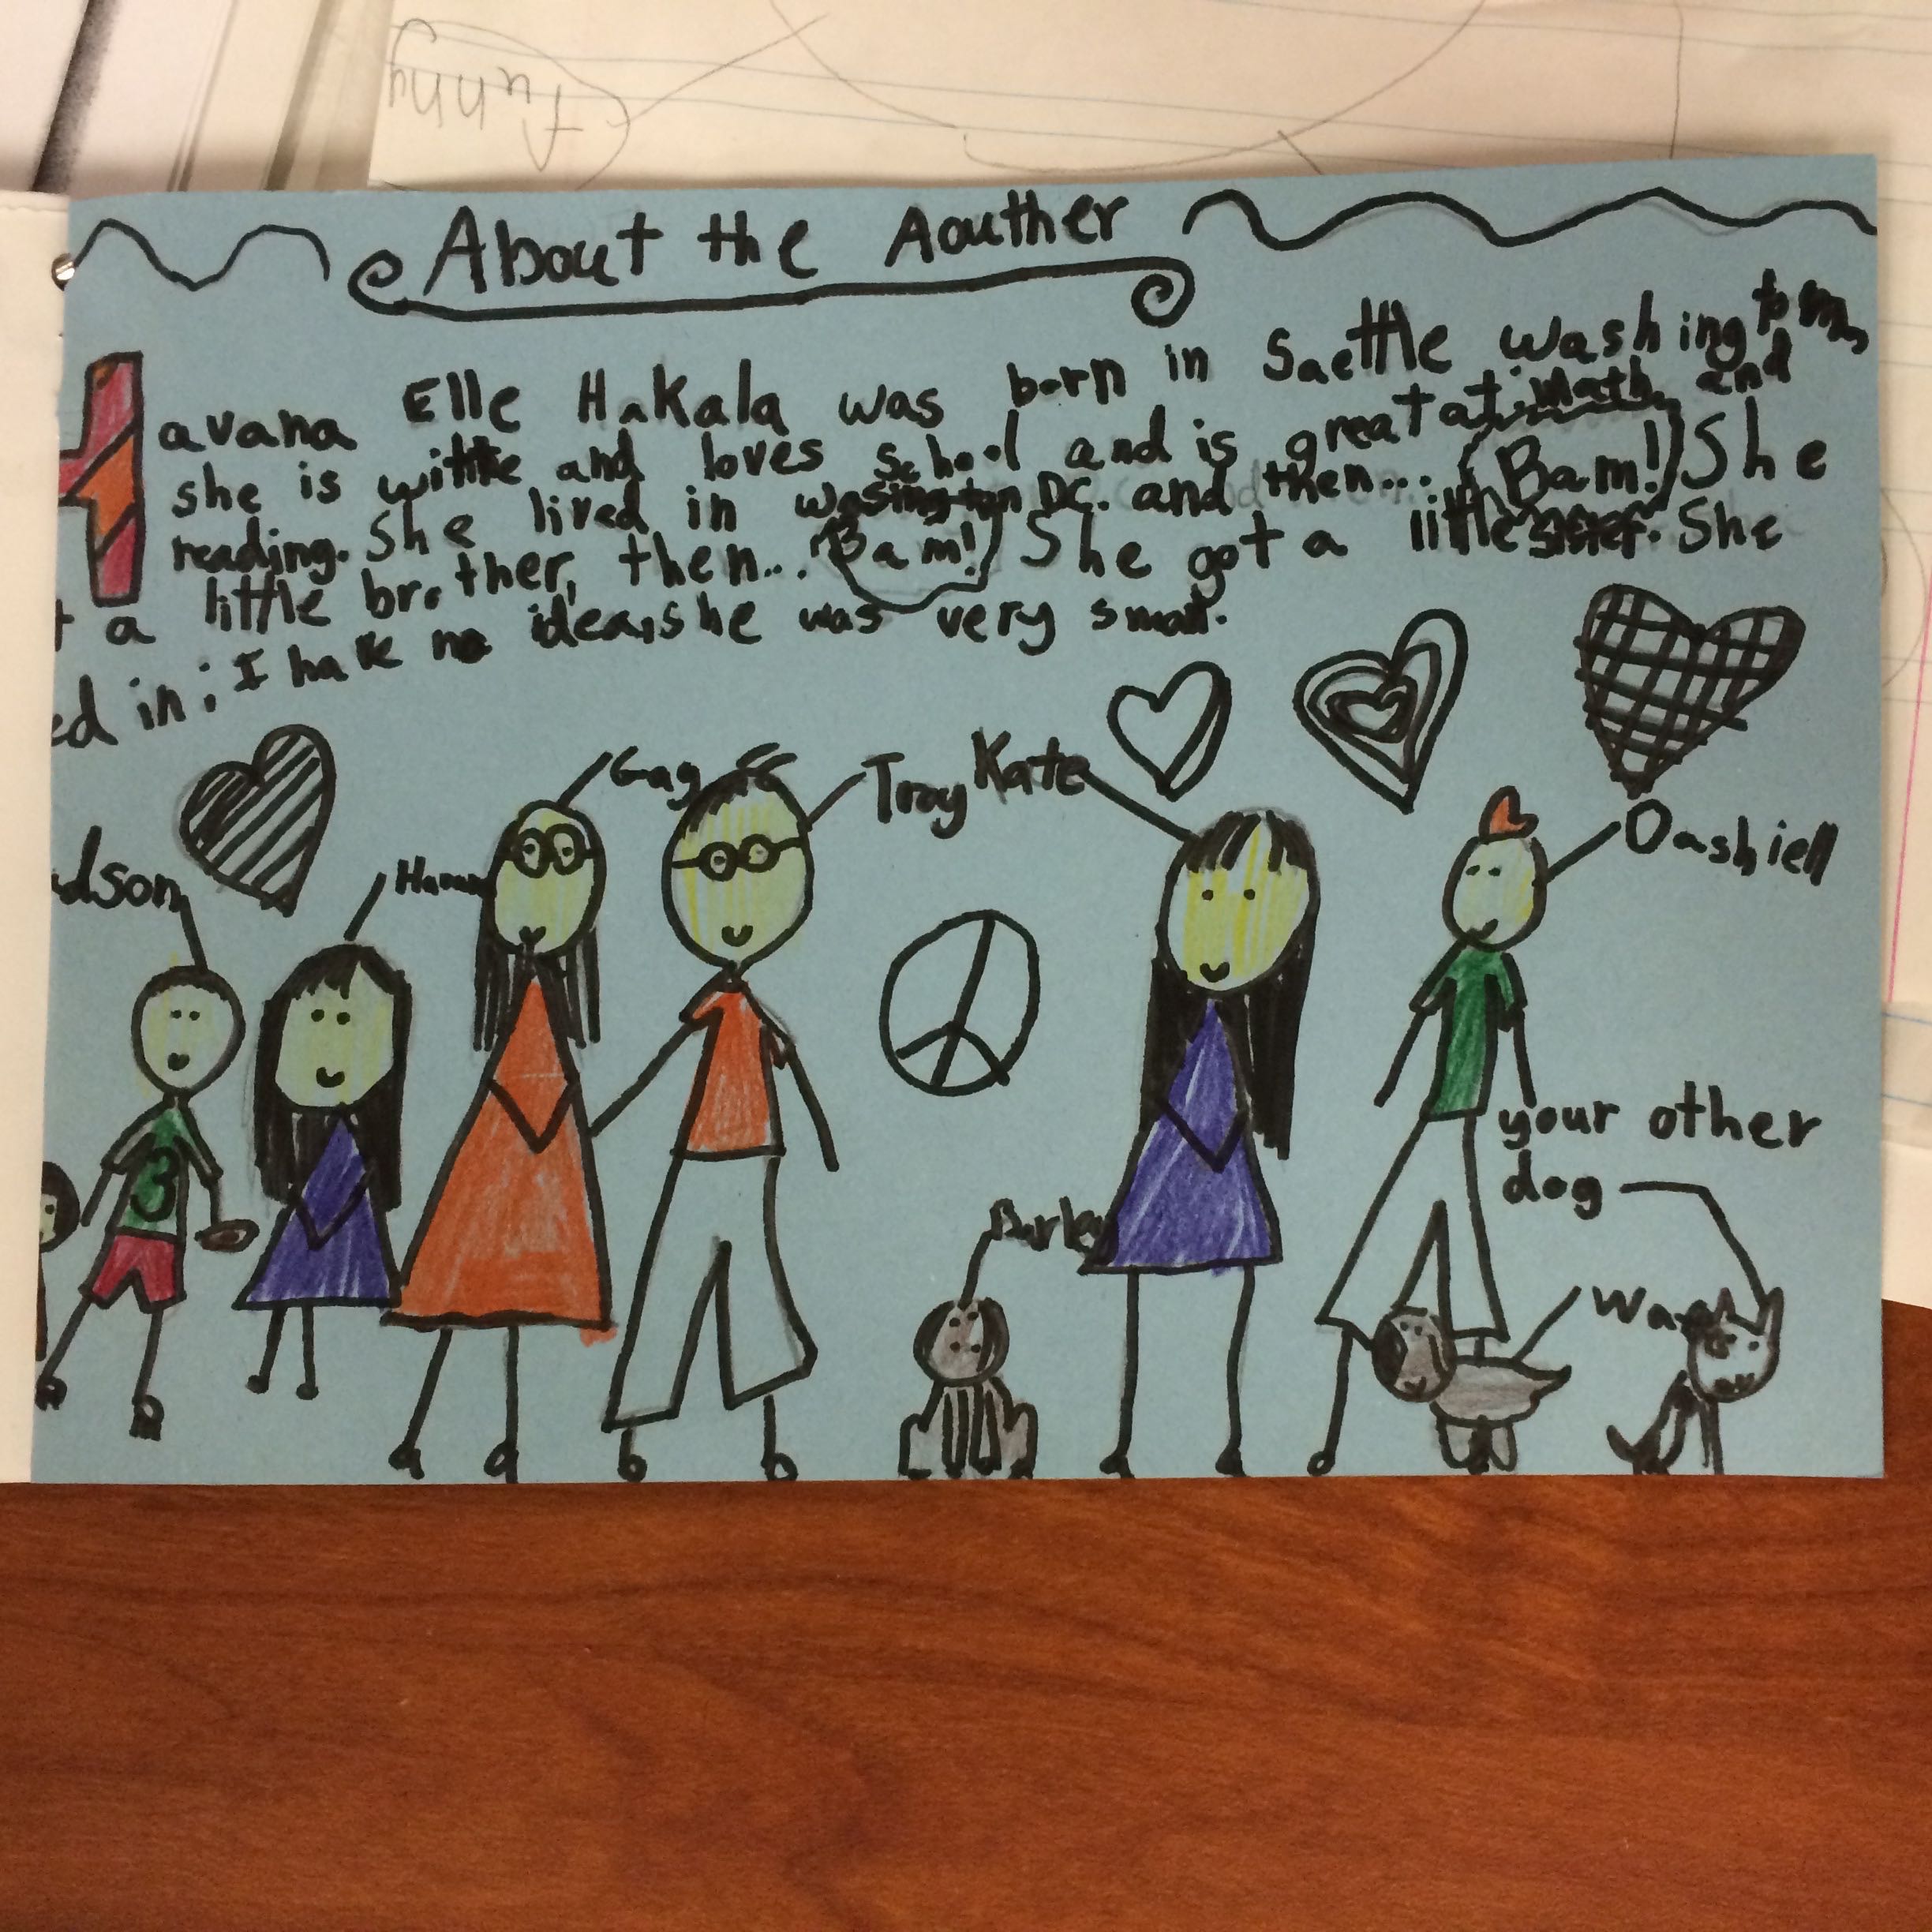 funny
About the Aouther
Havana Elle Hakala was born in Saettle Washington,
she is wittte and loves school and is great at math and
reading. She lived in Wasington DC. and then... Bam! She
t a little brother, then... Bam! She got a little sister. She
ed in; I hak no idea, she was very small.
Gag
Troy
Kate
Dashiell
dson
your other
dog
Barley